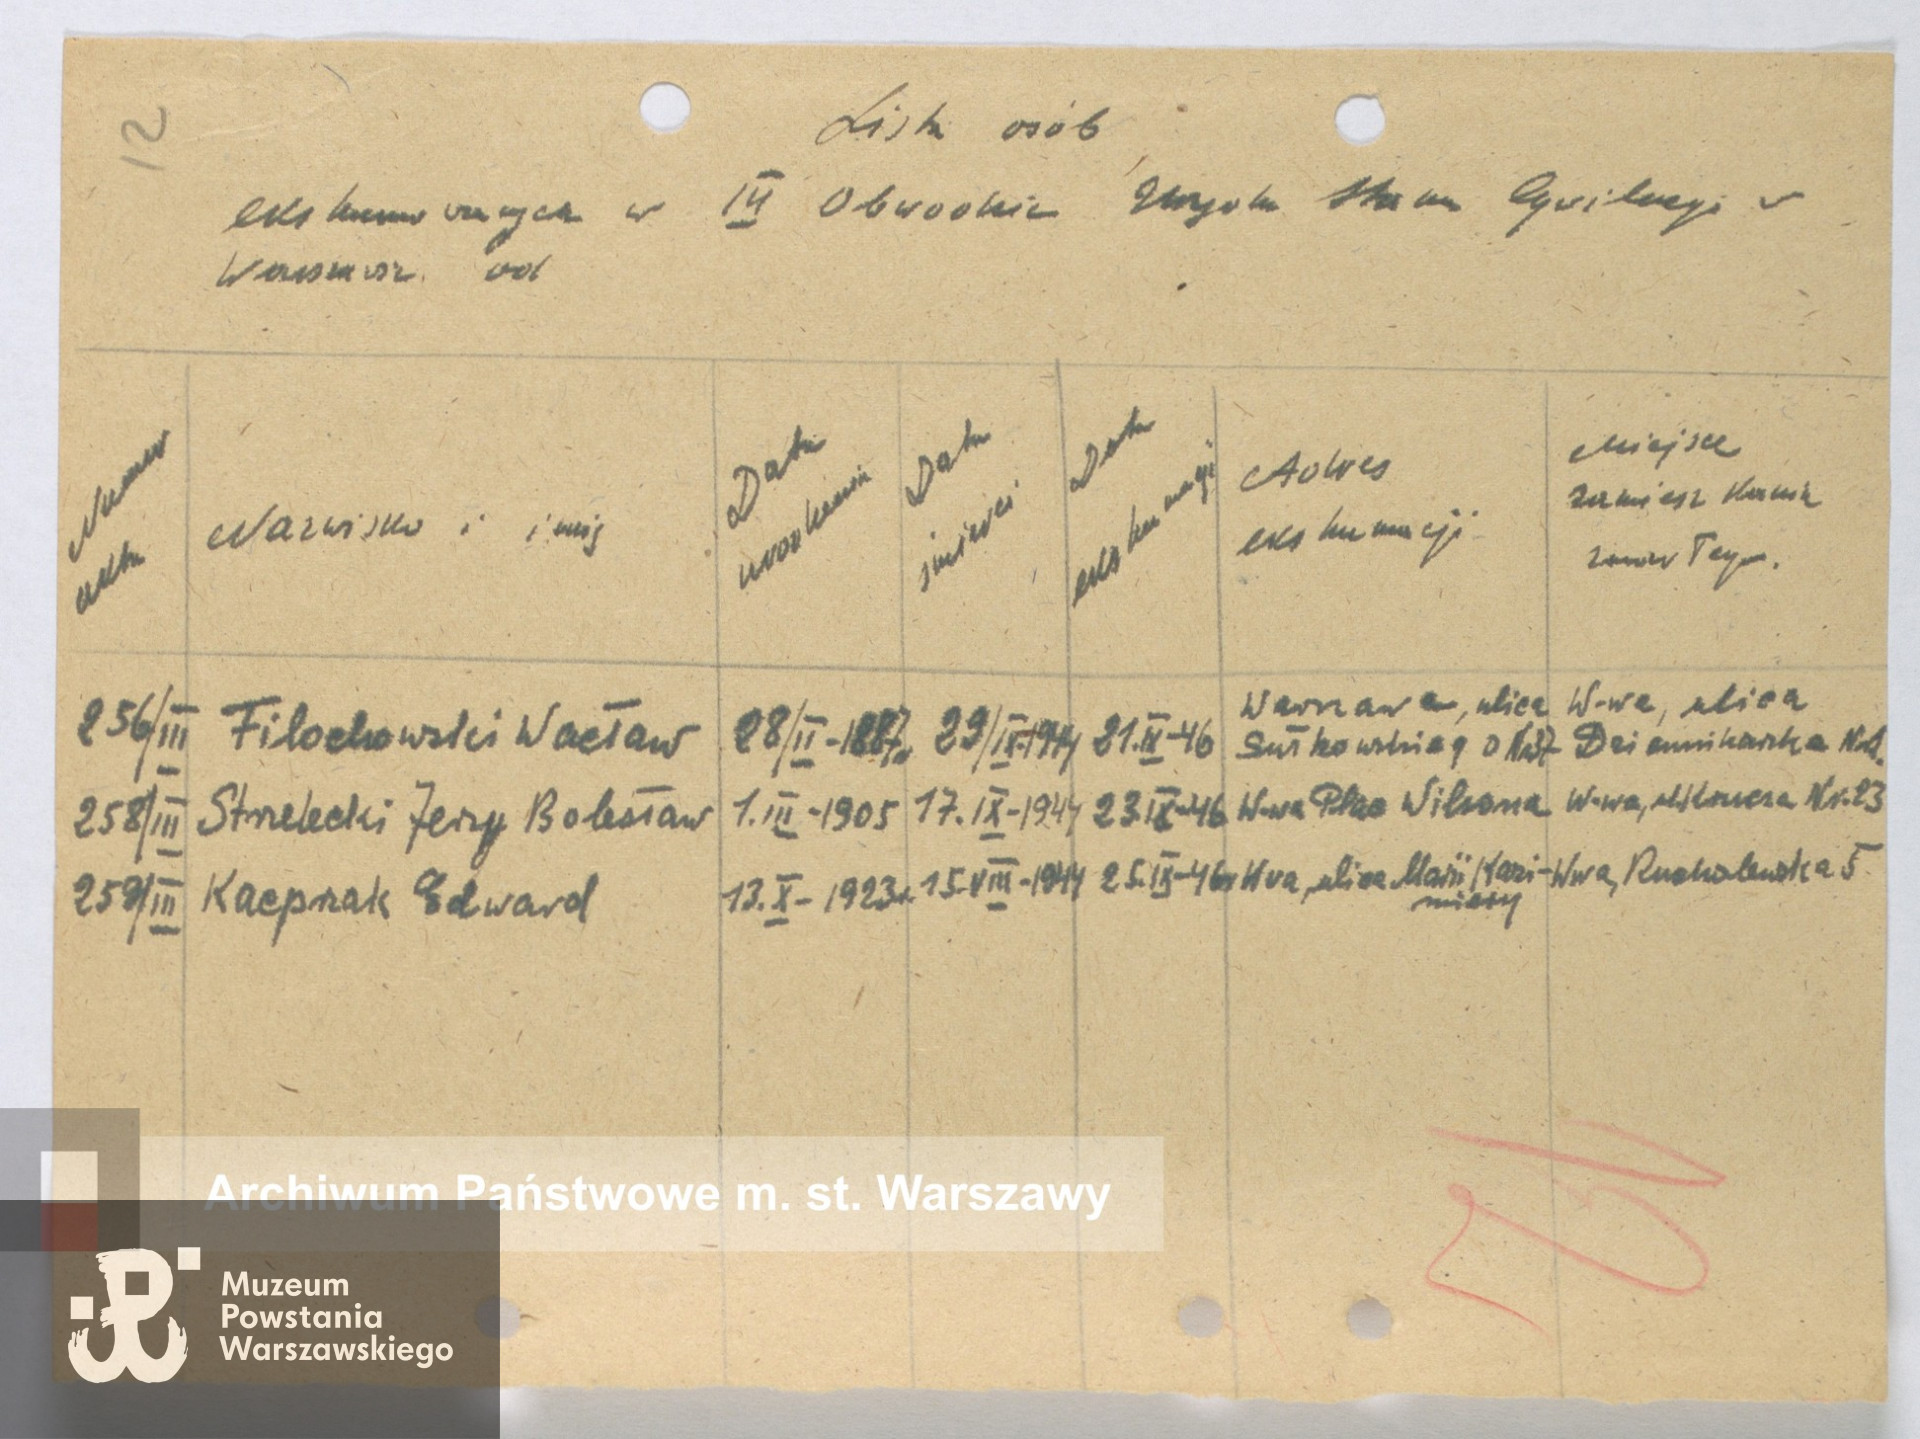 12
Lista osób
ekshumowanych w III Obwodzie Urzędu Stanu Cywilnego w
Warszawie od
Numer aktu
Nazwisko i imię
Data urodzenia
Data śmierci
Data ekshumacji
Adres ekshumacji
Miejsce zamieszkania zmarłego.
256/III Filochowski Wacław 28/II-1887r. 29/IX-1944 21.IX-46 Warszawa, ulica Sułkowskiego Nr37 W-wa, ulica Dziennikarska Nr.
258/III Strzelecki Jerzy Bolesław 1.III-1905 17.IX-1944 23.IX-46 W-wa Plac Wilsona W-wa, Nr.23
259/III Kacprzak Edward 13.X-1923r. 15.VIII-1944 25.IX-46r W-wa, ulica Marii Kazi-miery W-wa, 5
Archiwum Państwowe m. st. Warszawy
Muzeum
Powstania
Warszawskiego